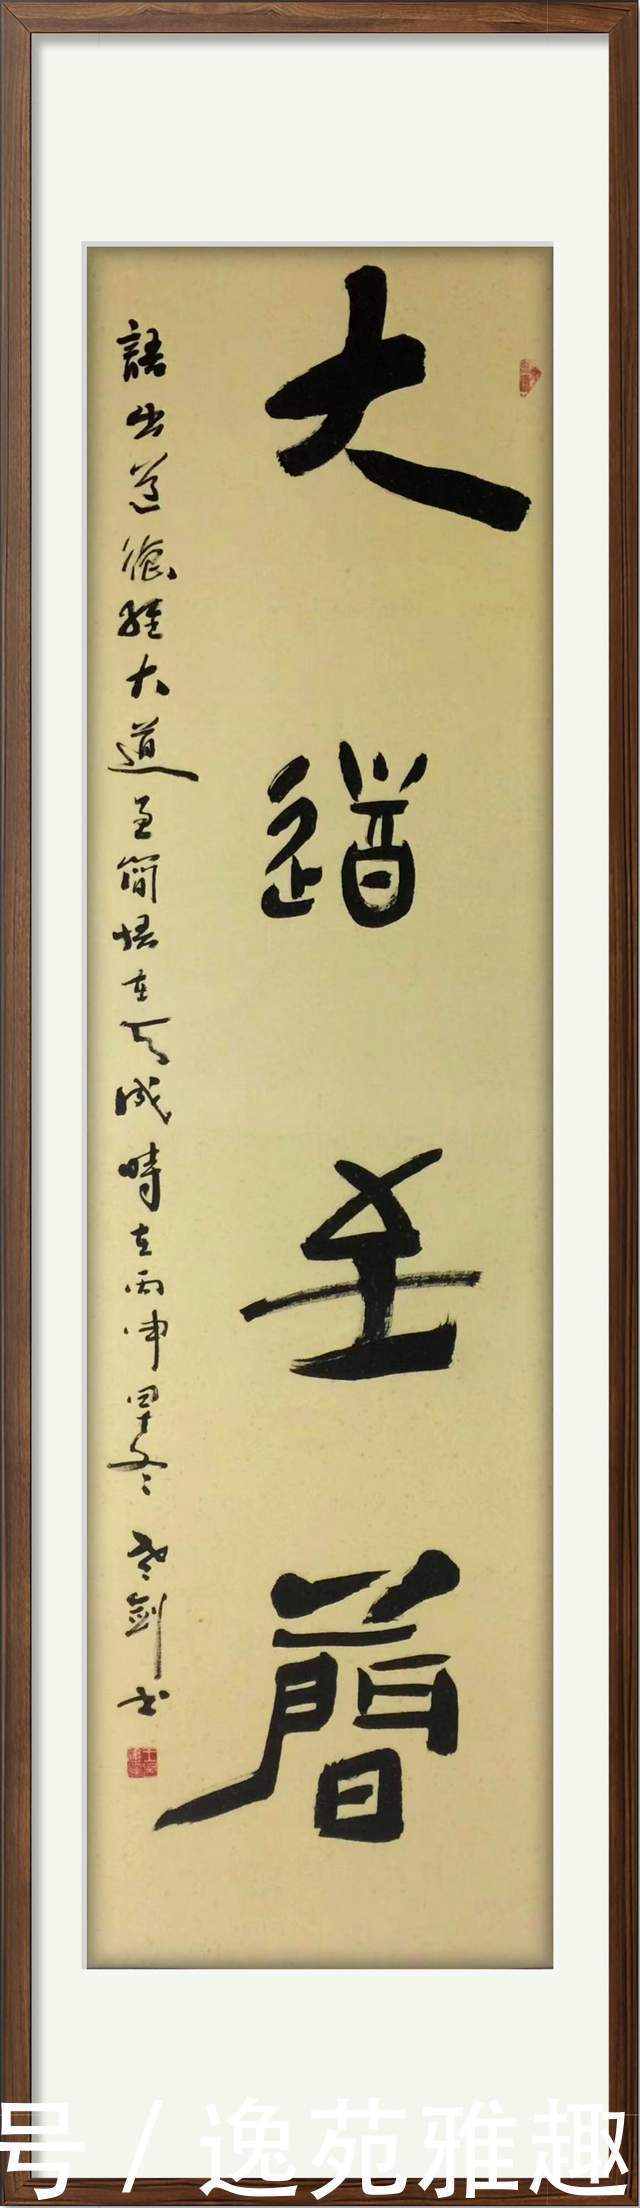 大道至簡
語出道德經大道至簡悟在天成時在丙申墨冬老劍书
号/逸苑雅趣